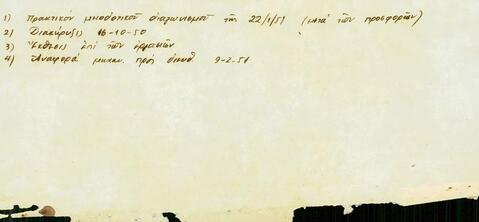 1) Πρακτικὸν μειοδοτικοῦ διαγωνισμοῦ τῆς 22/1/51 (μετὰ τῶν προσφορῶν)
2) Διακήρυξις 16-10-50
3) Ἔκθεσις ἐπὶ τῶν
4) Ἀναφορά μηχαν. πρὸς 9-2-51